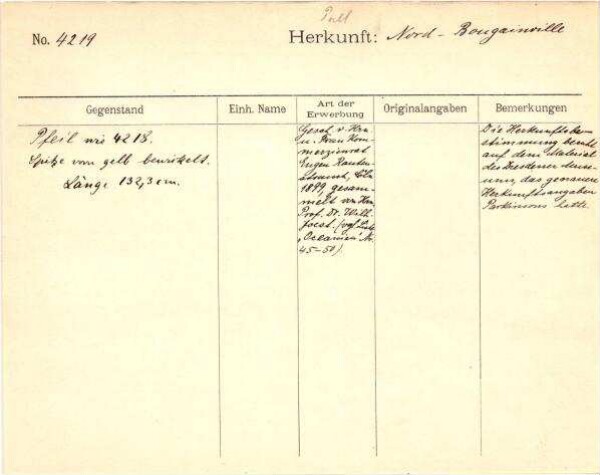 No. 4219
Herkunft: Nord-Bougainville
Gegenstand
Einh. Name
Art der
Erwerbung
Originalangaben
Bemerkungen
Pfeil wie 4218.
Spitze vorn gelb bewickelt.
Länge 132,3 cm.
Gesch. v. Hrn
u. Frau Kom-
merzienrat
Eugen Rauten-
strauch, Cöln
1899, gesam-
melt von Hrn
Prof. Dr. Wilh.
Joest. (vgl Liste
„Oceanien" Nr.
45-50).
Die Herkunftsbe-
stimmung beruht
auf dem Material
des Dresdener Muse-
ums, das genauere
Herkunftsangaben
Parkinsons hatte